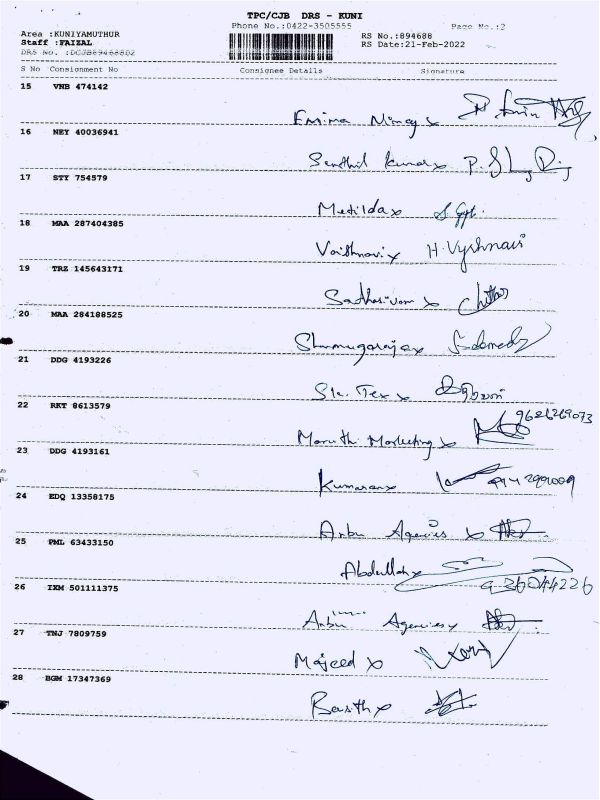 TPC/CJB DRS - KUNI
Phone No.:0422-3505555
Page No.:2
Area :KUNIYAMUTHUR
RS No.:894688
Staff :FAIZAL
RS Date:21-Feb-2022
DRS No. :DCJB89468802
S No Consignment No Consignee Details Signature
15 VNB 474142
16 NEY 40036941
Senthil Kumar x
17 STY 754579
Matilda x
18 MAA 287404385
Vaishnavi x H. Vyshnavi
19 TRZ 145643171
Sadhasivam x
20 MAA 284188525
Shanmugaraja x
21 DDG 4193226
Sk. Tex x
22 RKT 8613579
Maruthi Marketing x
23 DDG 4193161
Kumaran x
24 EDQ 13358175
Anbu Agencies x
25 PML 63433150
Abdullah x
26 IXM 501111375
Anbu Agencies x
27 TNJ 7809759
Majeed x
28 BGM 17347369